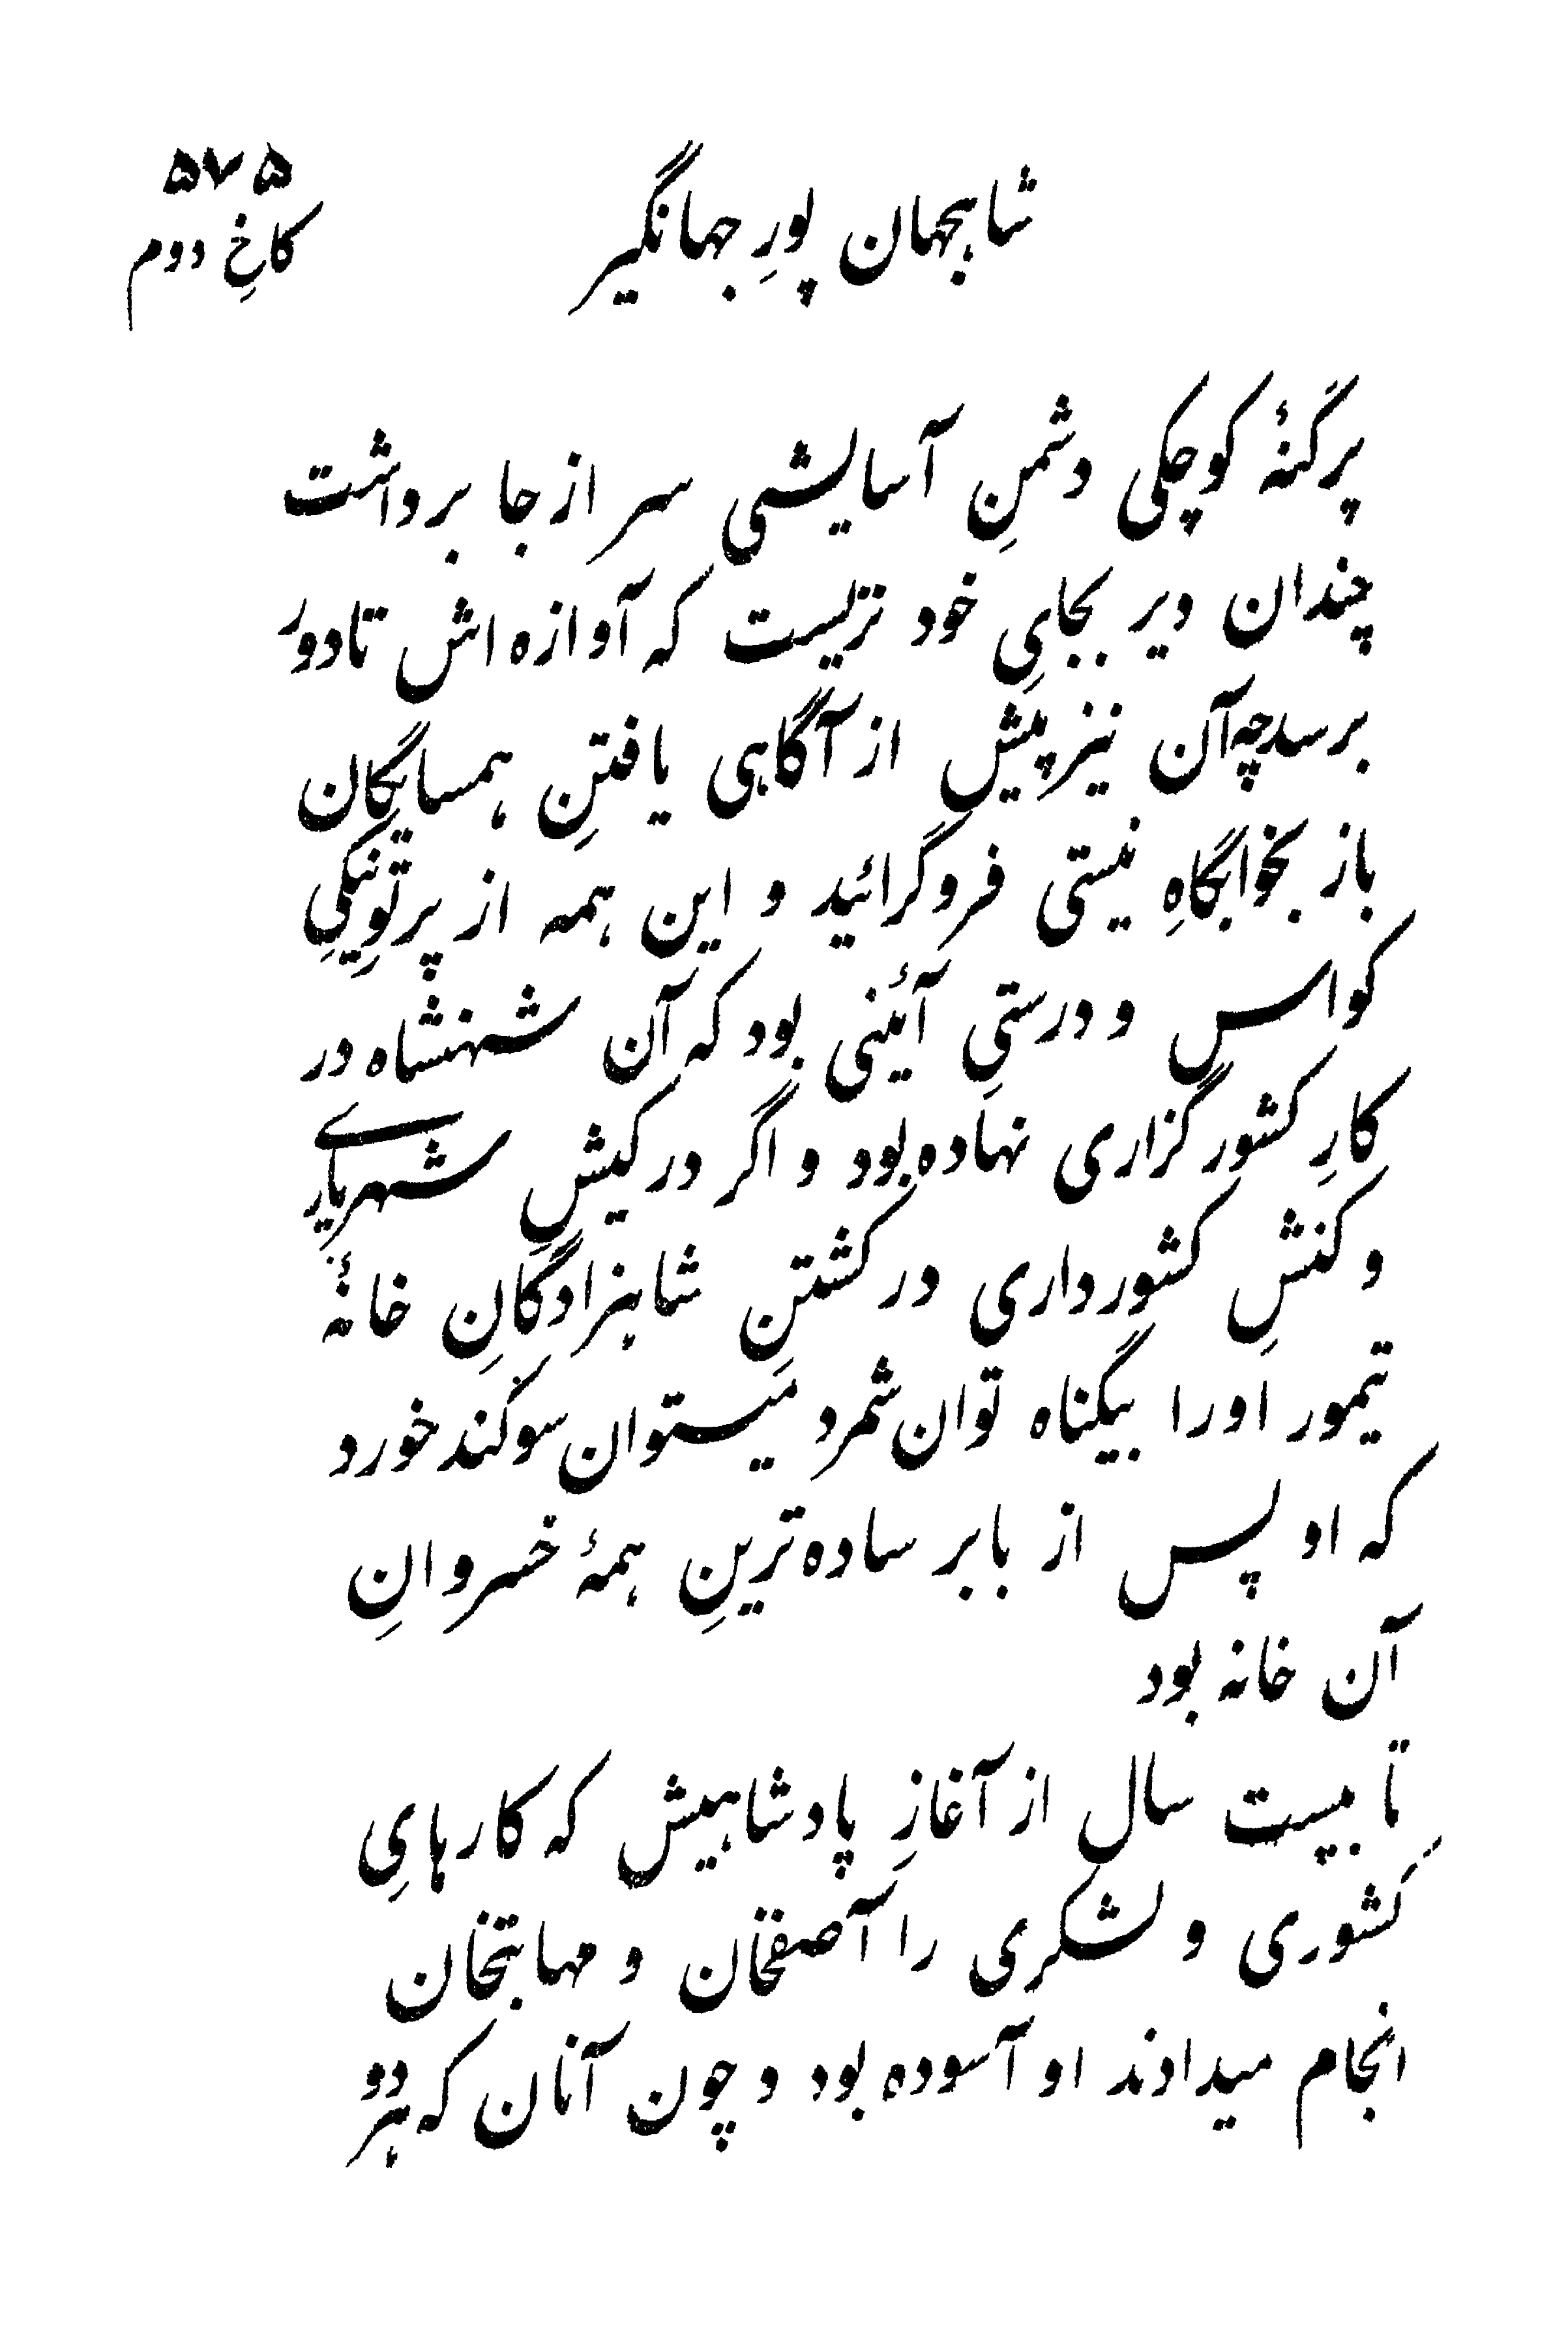 ۵۷۵
شاهجهان پورِ جهانگیر
کاخِ دوم
پرگنهٔ کوچکی دشمنِ آسایشی سر از جا برداشت
چندان دیر بجایِ خود نزیست که آوازه اش تا دور
برسد چه آن نیز پیش از آگاهی یافتنِ همسایگان
باز بخوابگاهِ نیستی فروگرائید و این همه از پرتوِ نیکیِ
کواس و درستیِ آئینی بود که آن شهنشاه در
کارِ کشور گزاری نهاده بود و اگر در کیشِ شهریاری
و کنشِ کشور داری در کشتنِ شاهزادگانِ خانهٔ
تیمور او را بیگناه توان شمرد میتوان سوگند خورد
که او پس از بابر ساده ترینِ همهٔ خسروانِ
آن خانه بود
تا بیست سال از آغازِ پادشاهیش که کارهایِ
کشوری و لشکری را آصفخان و مهابتخان
انجام میدادند او آسوده بود و چون آنان که هر دو